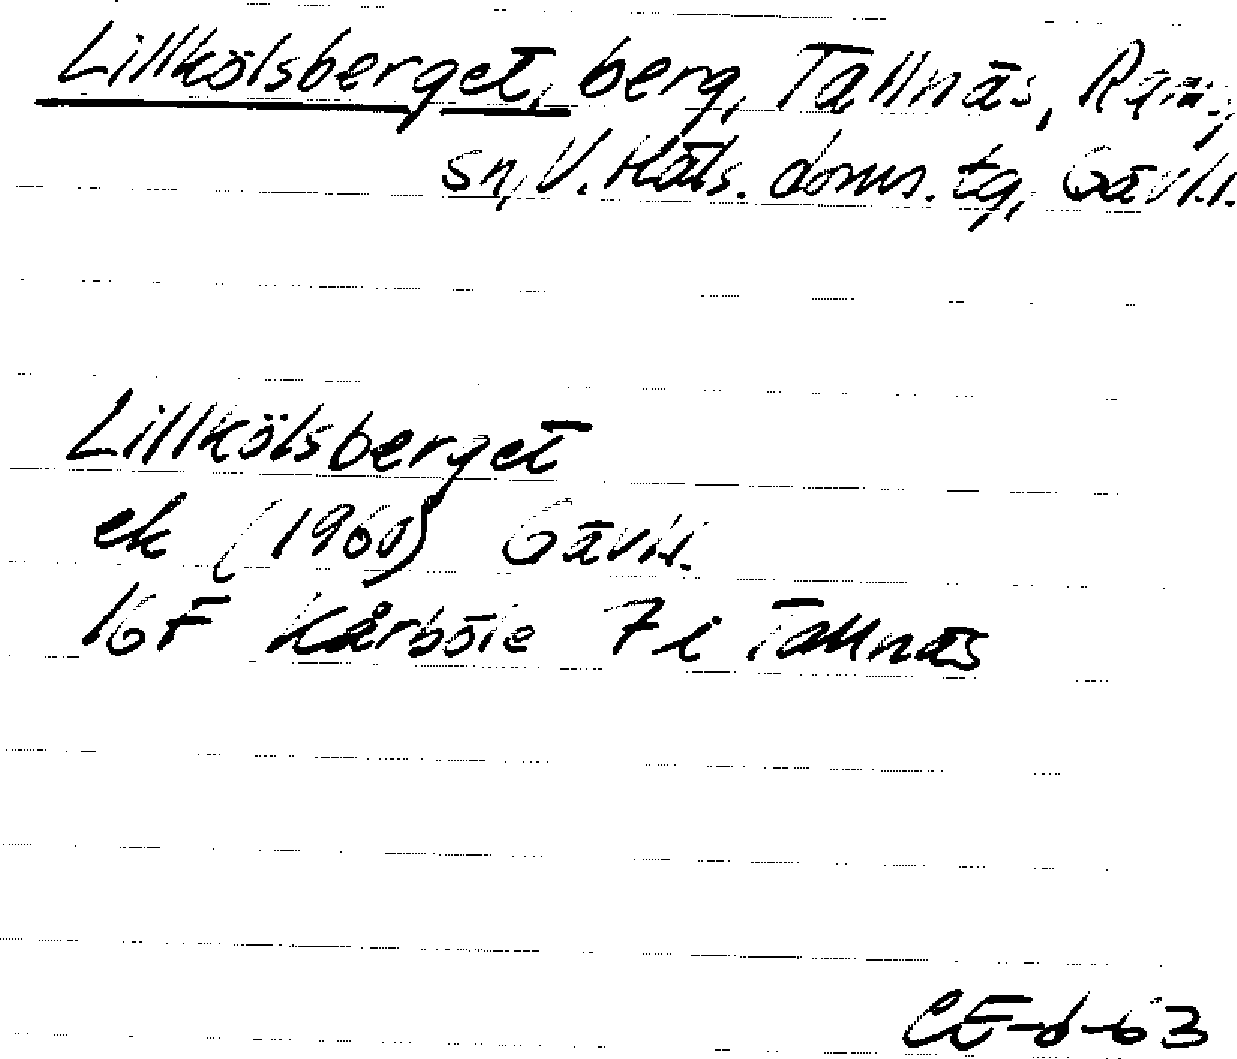 Lillkölsberget, berg, Tallnäs, Ram.,
sn, V. Häls. doms. tg, Gävl.l.
Lillkölsberget
ek (1960) Gävl.l.
16F Kårböle 7i Tallnäs